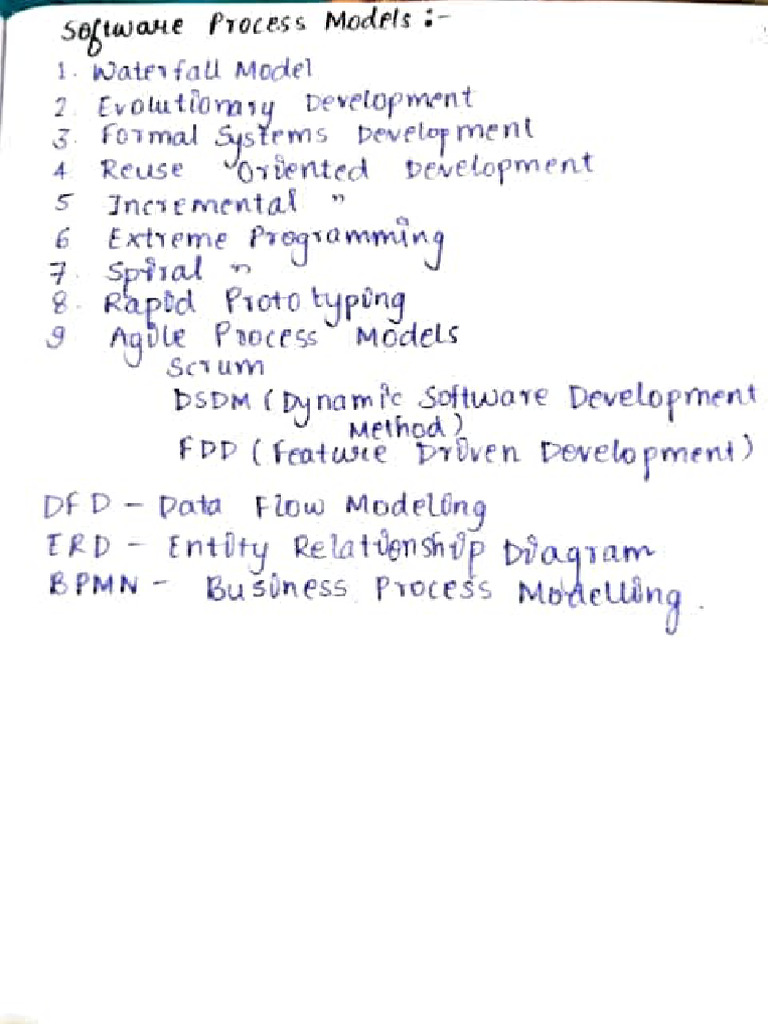 Software Process Models :-
1. Waterfall Model
2. Evolutionary Development
3. Formal Systems Development
4 Reuse Oriented Development
5 Incremental "
6 Extreme Programming
7. Spiral "
8. Rapid Prototyping
9 Agile Process Models
Scrum
DSDM (Dynamic Software Development
Method)
FDD (Feature Driven Development)
DFD - Data Flow Modeling
ERD - Entity Relationship Diagram
BPMN - Business Process Modelling.